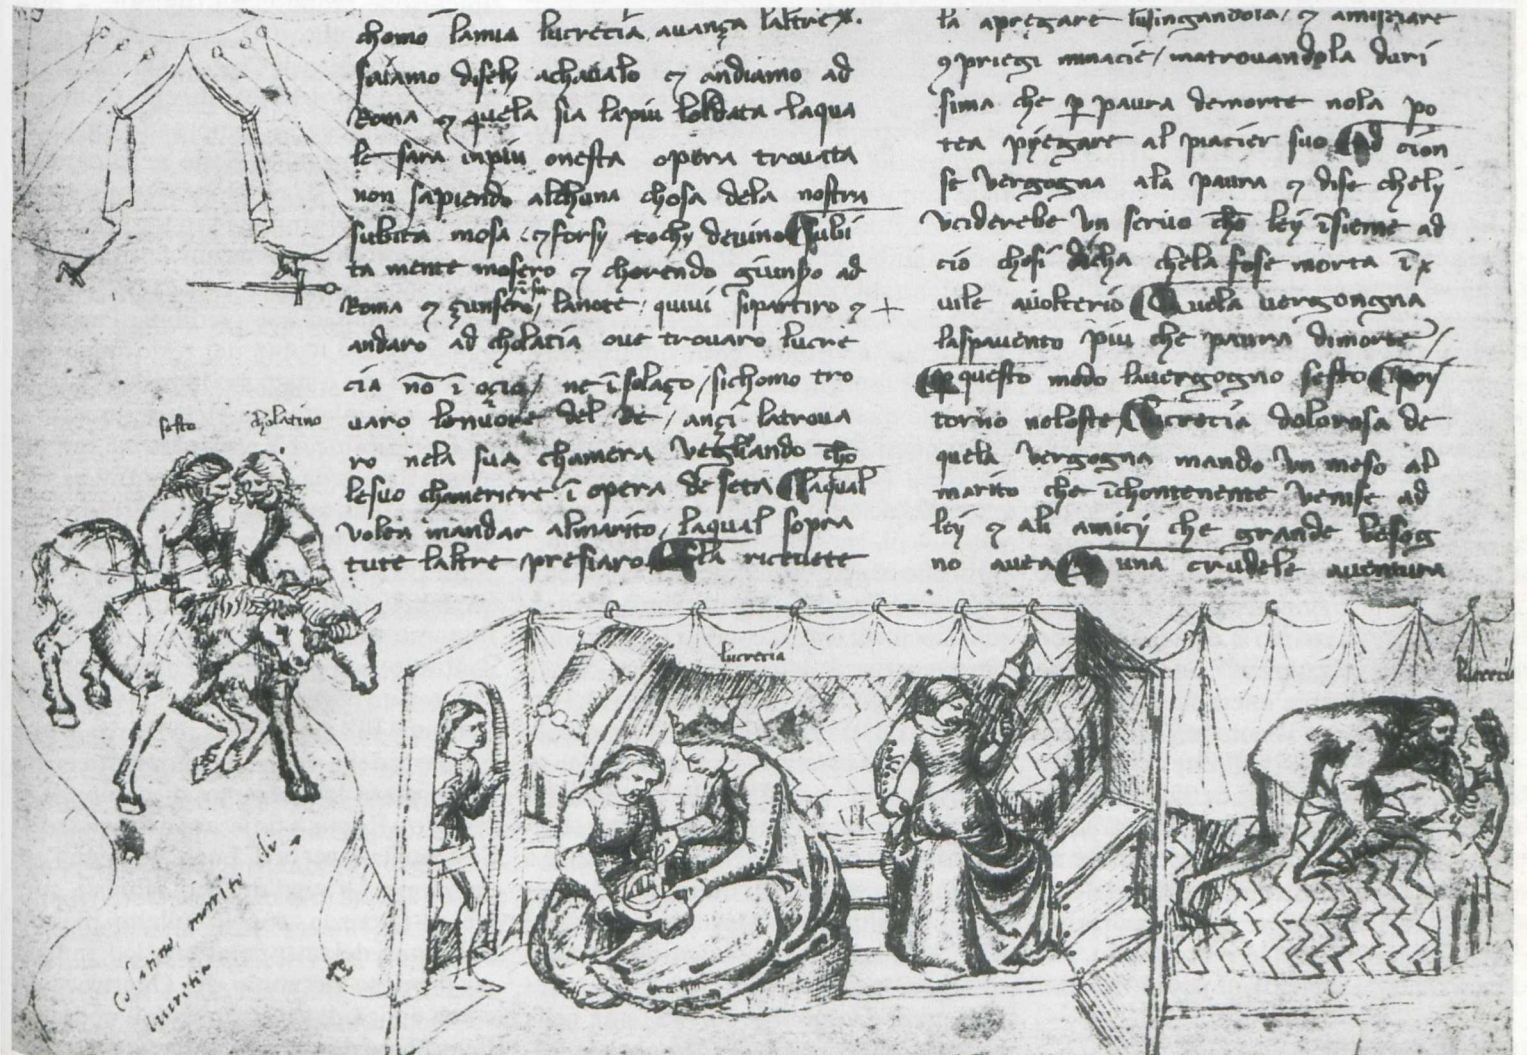 chomo lamia lucrecia avança laltre.
saiamo disely achavalo ⁊ andiamo ad
Roma ⁊ quela sia lapiu loldata laqua
le sara inpiu onesta opera trovata
non sapiendo alchuna chosa dela nostra
subita mosa ⁊ forsy tochy devino Subi
ta mente mosero ⁊ chorendo giunseo ad
Roma ⁊ lanote quivi sipartiro ⁊ +
andaro ad cholatia ove trovaro lucre
cia nō ī ocio / ne ī solaço / sichomo tro
varo lenuore del Re / ançi latrova
ro nela sua chamera vegliando chō
lesuo chameriere ī opera de seta Laqual
volea mandar almarito, laqual sopra
tute laltre presiaro Ela ricevete
la apregare lusingandola, ⁊ amisciare
priegi minacie / matrovandola duri
sima che p̱ paura demorte nola po
tea piegare al piacier suo Ad cion
se vergogna ala paura ⁊ dise chely
uciderebe un servo chō ley īsieme ad
ciò chosi dicha chela fose morta ī
vile avolterio Quela vergongna
laspavento piu che paura dimorte /
questo modo lavergogno sesto ⁊ poy
torno neloste / Lucrecia dolorosa de
quela vergogna mando un meso al
marito che īchontenente venise ad
ley ⁊ ali amicy che grande besog
no avea una crudele aventura
sesto cholatino
lucrecia
lucrecia
Colatino marito de
lucritia